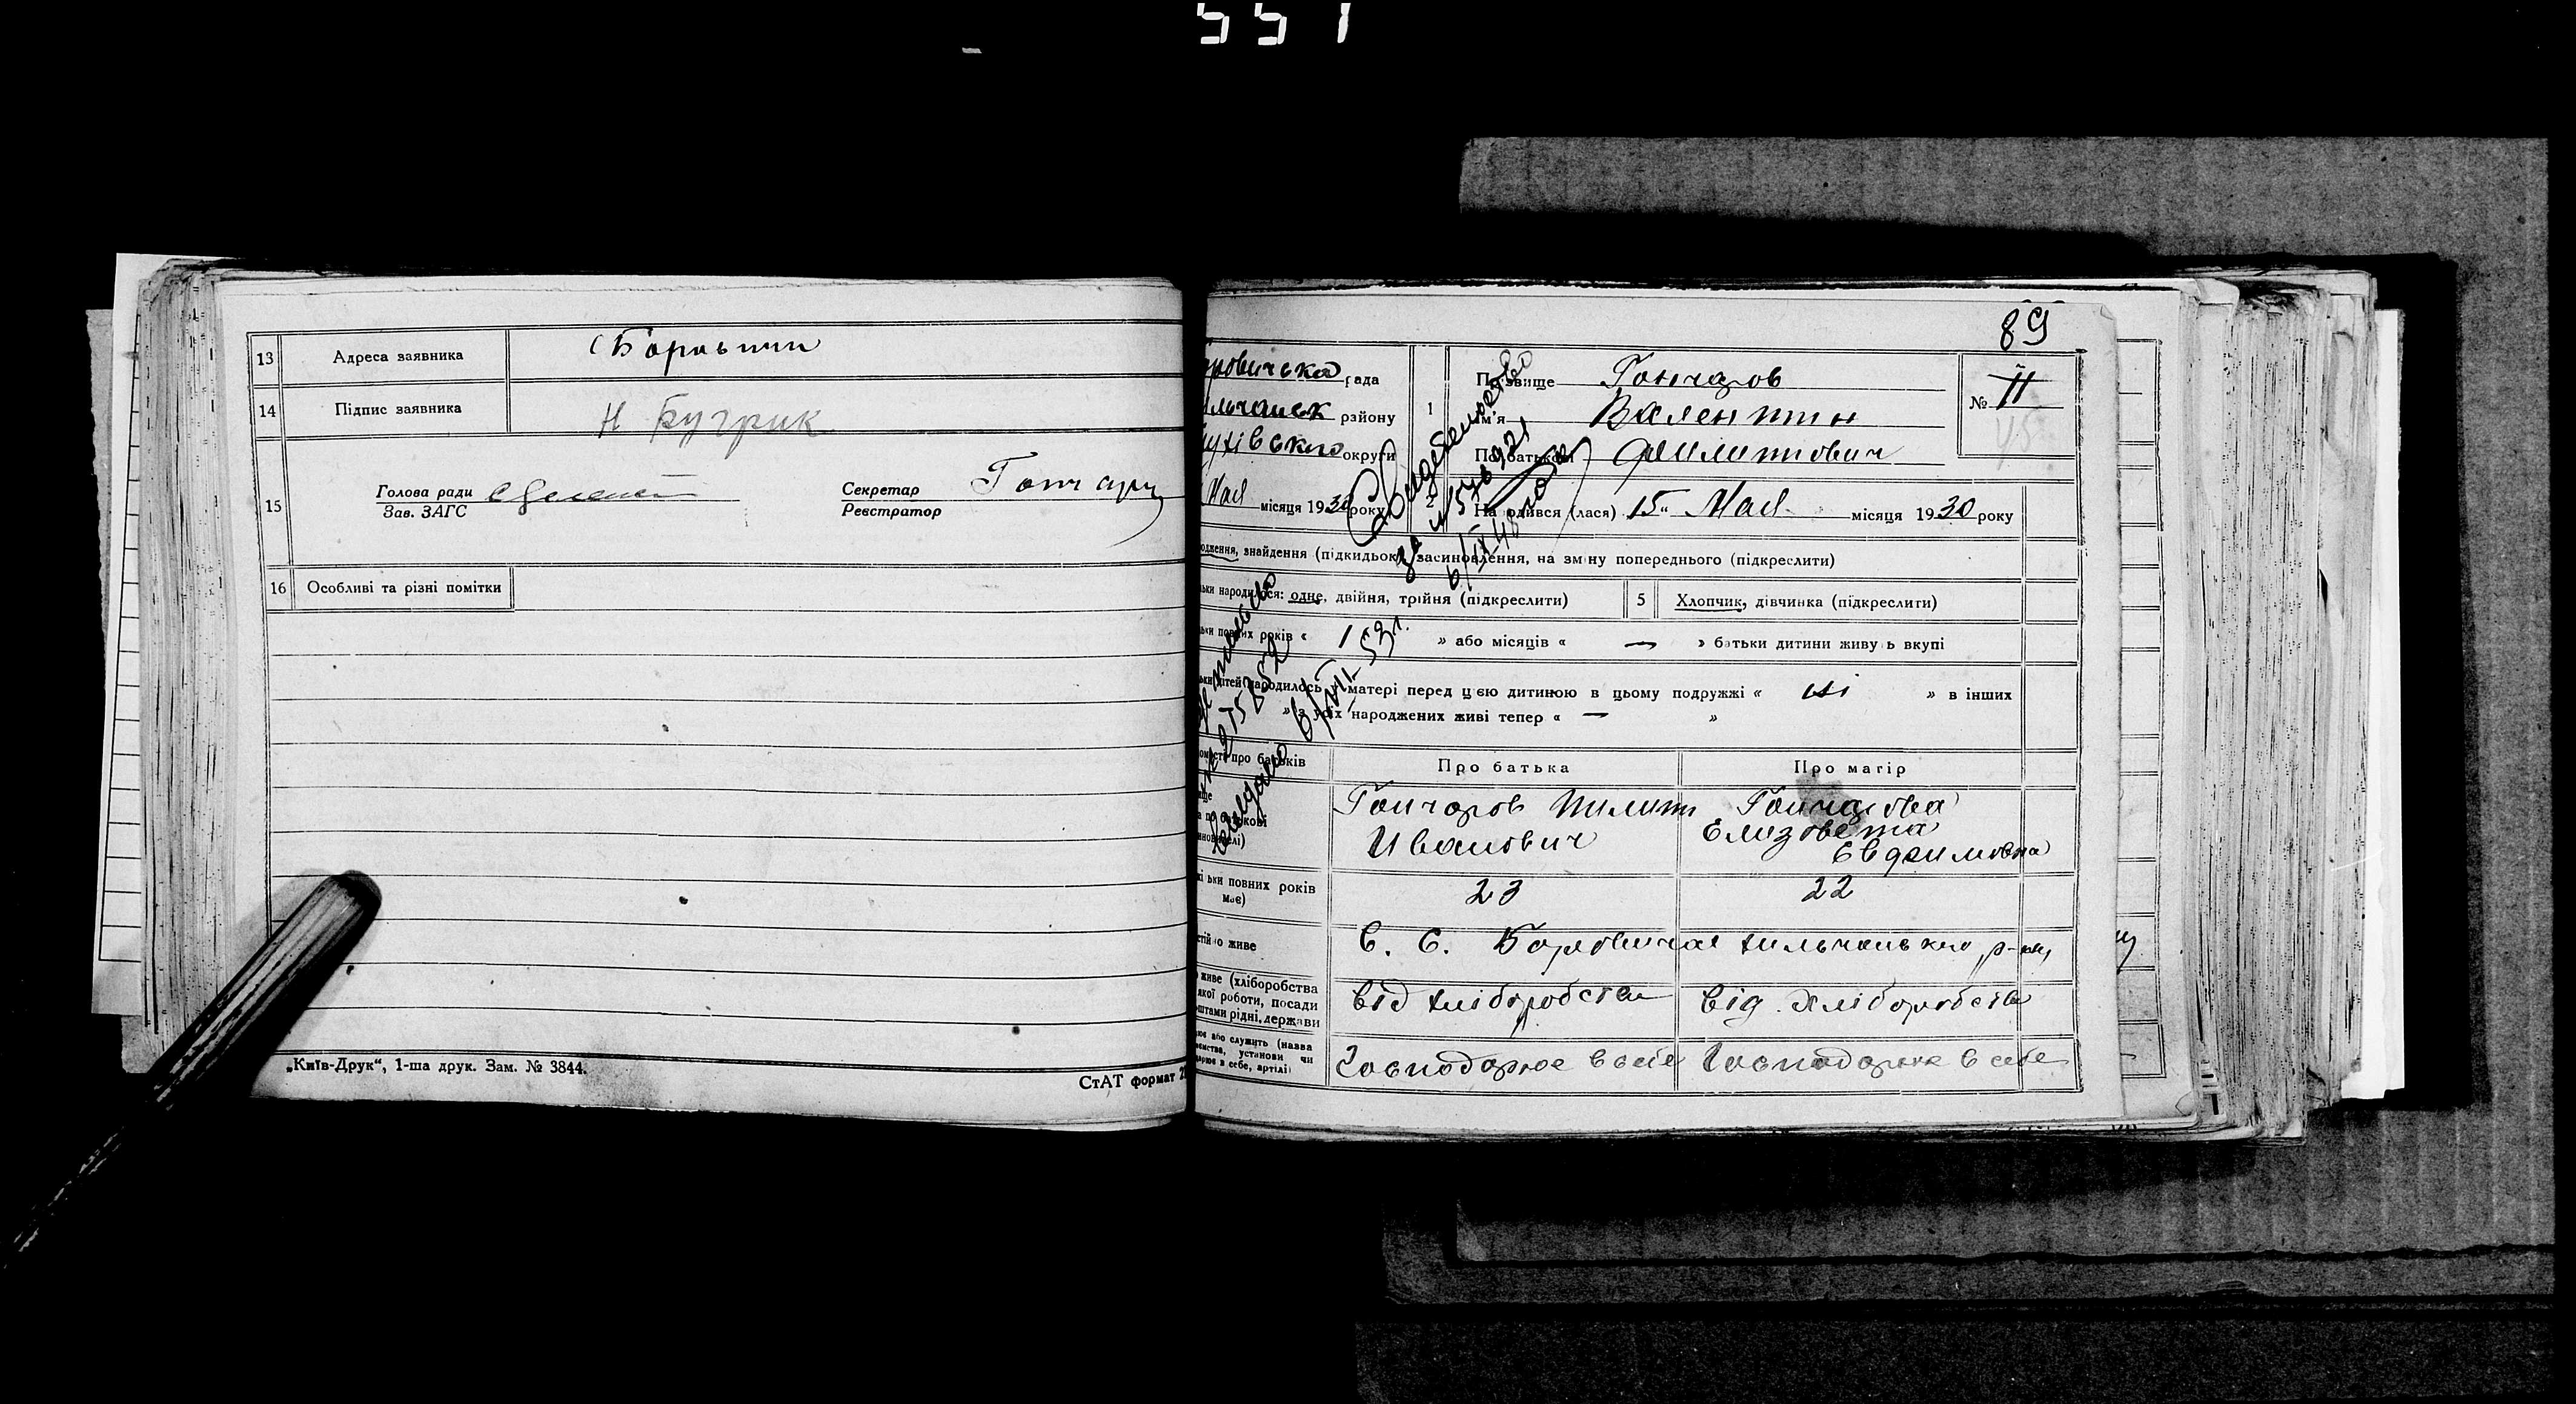 551
13 Адреса заявника с Боровичи
14 Підпис заявника Н Бугрик
15 Голова ради
Зав. ЗАГС
Секретар Гончару
Реєстратор
16 Особливі та різні помітки
„Київ-Друк“, 1-ша друк. Зам. № 3844.
СтАТ формат
89
ровичська рада
льчанськ району
ухівського округи
Мая місяця 1930 року
1 Прізвище Гончаров
Ім'я Валентин
По батькові Филиппович
№ 11
2 Народився (лася) 15" Мая місяця 1930 року
одження, знайдення (підкидьок) засиновлення, на зміну попереднього (підкреслити)
ьки народилося: одне, двійня, трійня (підкреслити) 5 Хлопчик, дівчинка (підкреслити)
ьки повних років « 1 » або місяців « — » батьки дитини живуть вкупі
ьки дітей народилось у матері перед цією дитиною в цьому подружжі « ні » в інших
» з усіх народжених живі тепер « — »
Свидетельство
за № 576921
6/IX-48
275852
Выдано 6/VII-53г.
омості про батьків Про батька Про матір
Гончаров Пилип Гончарова
Иванович Елизовета
Евдокимовна
ільки повних років
має) 23 22
тійно живе В. С. Боровичах Хильчанського р-ну
живе (хліборобства
якої роботи, посади
штами рідні, держави
від хліборобства від. хліборобства
ює або служить (назва
ємства, установи чи
дарює в себе, артілі)
Господарює в себе Господарює в себе